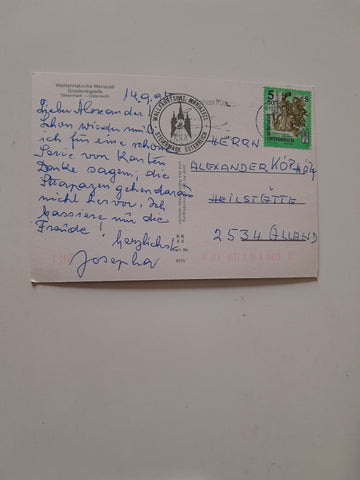 Wallfahrtskirche Mariazell
Gnadenkapelle
Steiermark – Österreich
14.9.95
Lieber Alexander!
Schon wieder muß
ich für eine schöne
Serie von Karten
Danke sagen, die
Strapazen gehen daraus
nicht hervor. Ich
kassiere nur die
Freude! Herzlichst
Josepha
WALLFAHRTSORT MARIAZELL
STEIERMARK, ÖSTERREICH
5
S
HERRN
ALEXANDER
HEILSTÄTTE
2534 ALLAND